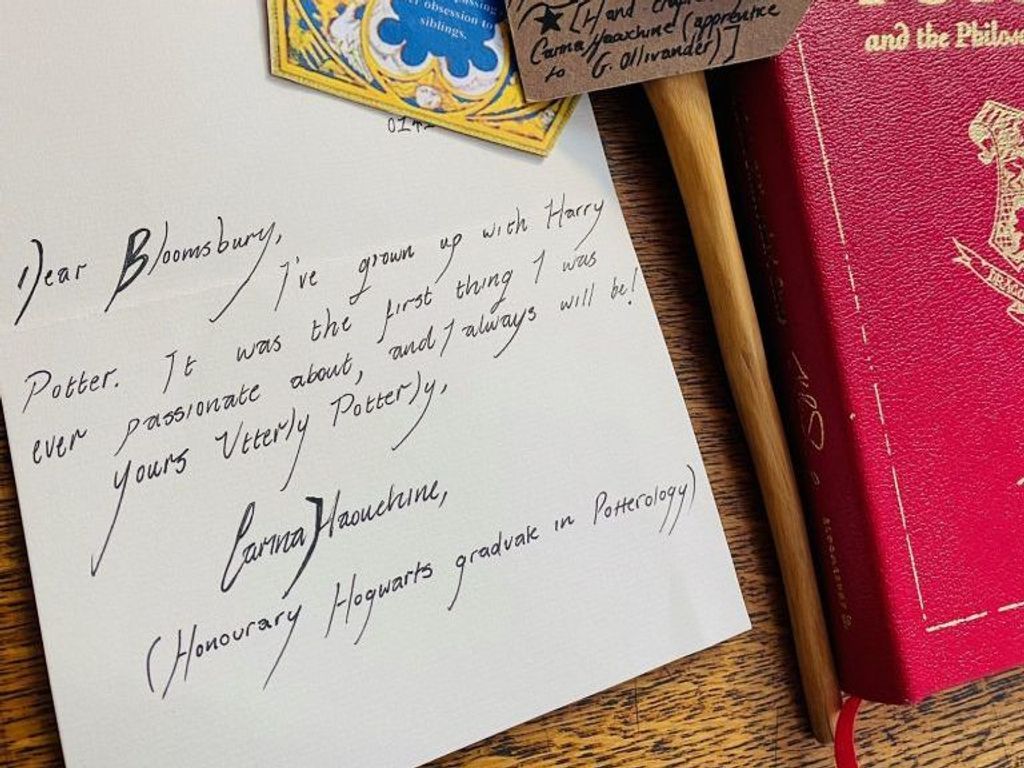 obsession to
siblings.
★ [Hand
Carina Haouchine (apprentice
to G. Ollivander)]
and the Philoso
Dear Bloomsbury,
I've grown up with Harry
Potter. It was the first thing I was
ever passionate about, and I always will be!
yours Utterly Potterly,
Carina Haouchine,
(Honourary Hogwarts graduate in Potterology)